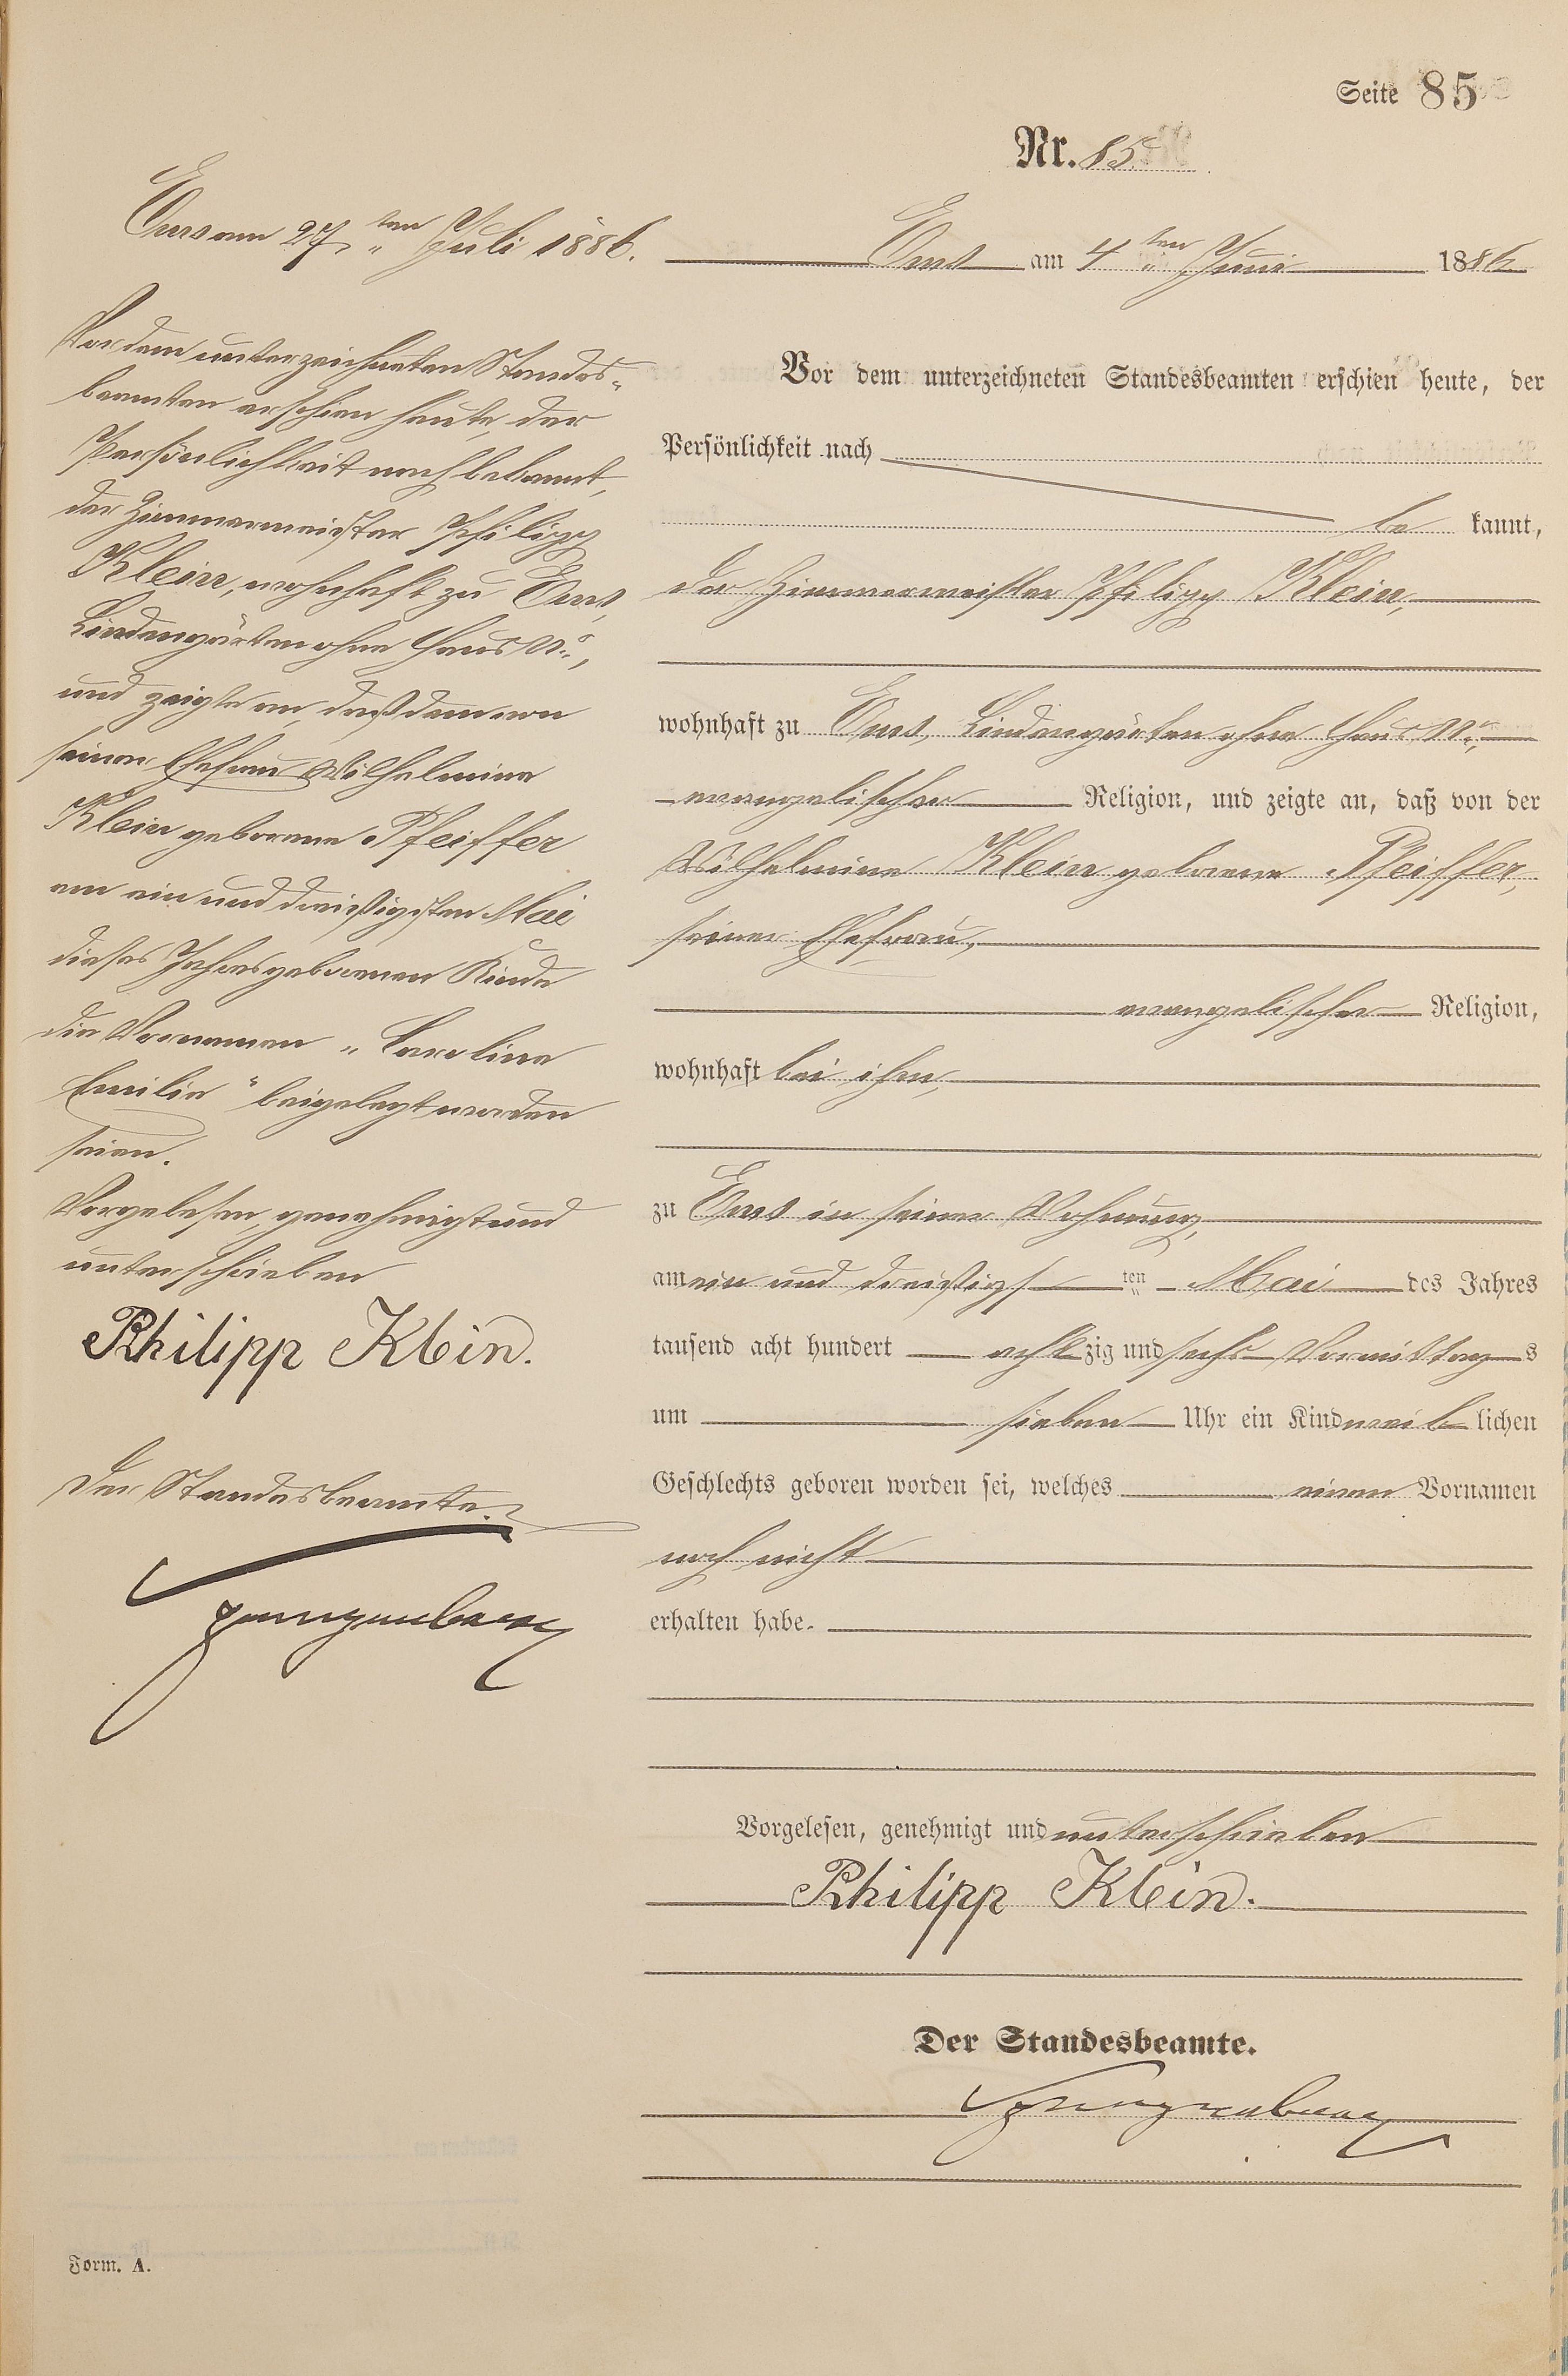 Seite 85
Nr. 85.
Ems am 27ten Juli 1886.
Vor dem unterzeichneten Standes-
beamten erschien heute, der
Persönlichkeit nach bekannt,
der Zimmermeister Philipp
Klein, wohnhaft zu Ems,
Lindengärten ohne Haus No.,
und zeigte an, daß dem von
seiner Ehefrau Wilhelmine
Klein geborene Pfeiffer
am ein und dreißigsten Mai
dieses Jahres geborenen Kinde
die Vornamen „Caroline
Emilie" beigelegt worden
seien.
Vorgelesen, genehmigt und
unterschrieben
Philipp Klein.
Der Standesbeamte.
Ems am 4ten Juni 1886
Vor dem unterzeichneten Standesbeamten erschien heute, der
Persönlichkeit nach
bekannt,
der Zimmermeister Philipp Klein,
wohnhaft zu Ems, Lindengärten ohne Haus No.,
evangelischer Religion, und zeigte an, daß von der
Wilhelmine Klein geborene Pfeiffer,
seiner Ehefrau,
evangelischer Religion,
wohnhaft bei ihm,
zu Ems in seiner Wohnung,
am ein und dreißigsten Mai des Jahres
tausend acht hundert achtzig und sechs Vormittags
um sieben Uhr ein Kind weiblichen
Geschlechts geboren worden sei, welches einen Vornamen
noch nicht
erhalten habe.
Vorgelesen, genehmigt und unterschrieben
Philipp Klein.
Der Standesbeamte.
Form. A.